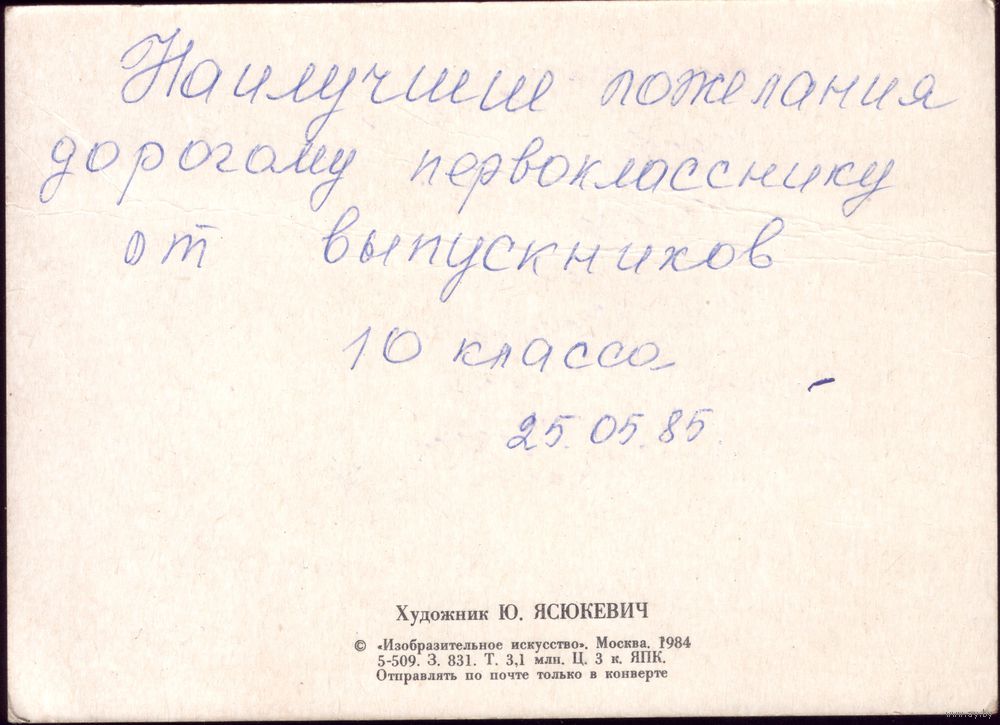 Наилучшие пожелания
дорогому первокласснику
от выпускников
10 класса
25.05.85.
Художник Ю. ЯСЮКЕВИЧ
© «Изобразительное искусство». Москва. 1984
5-509. З. 831. Т. 3,1 млн. Ц. 3 к. ЯПК.
Отправлять по почте только в конверте
www.ay.by